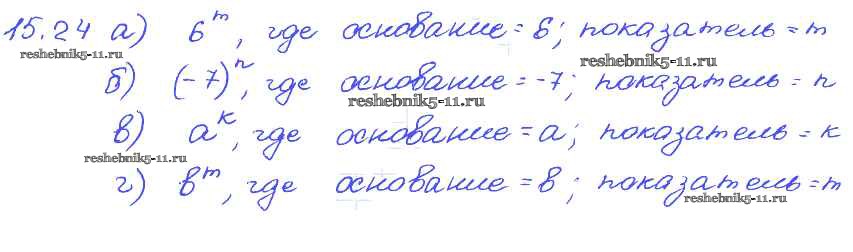 15.24 а) 6^m, где основание = 6; показатель = m
reshebnik5-11.ru
reshebnik5-11.ru
б) (-7)^n, где основание = -7; показатель = n
reshebnik5-11.ru
в) a^k, где основание = a; показатель = k
reshebnik5-11.ru
г) b^m, где основание = b; показатель = m
reshebnik5-11.ru